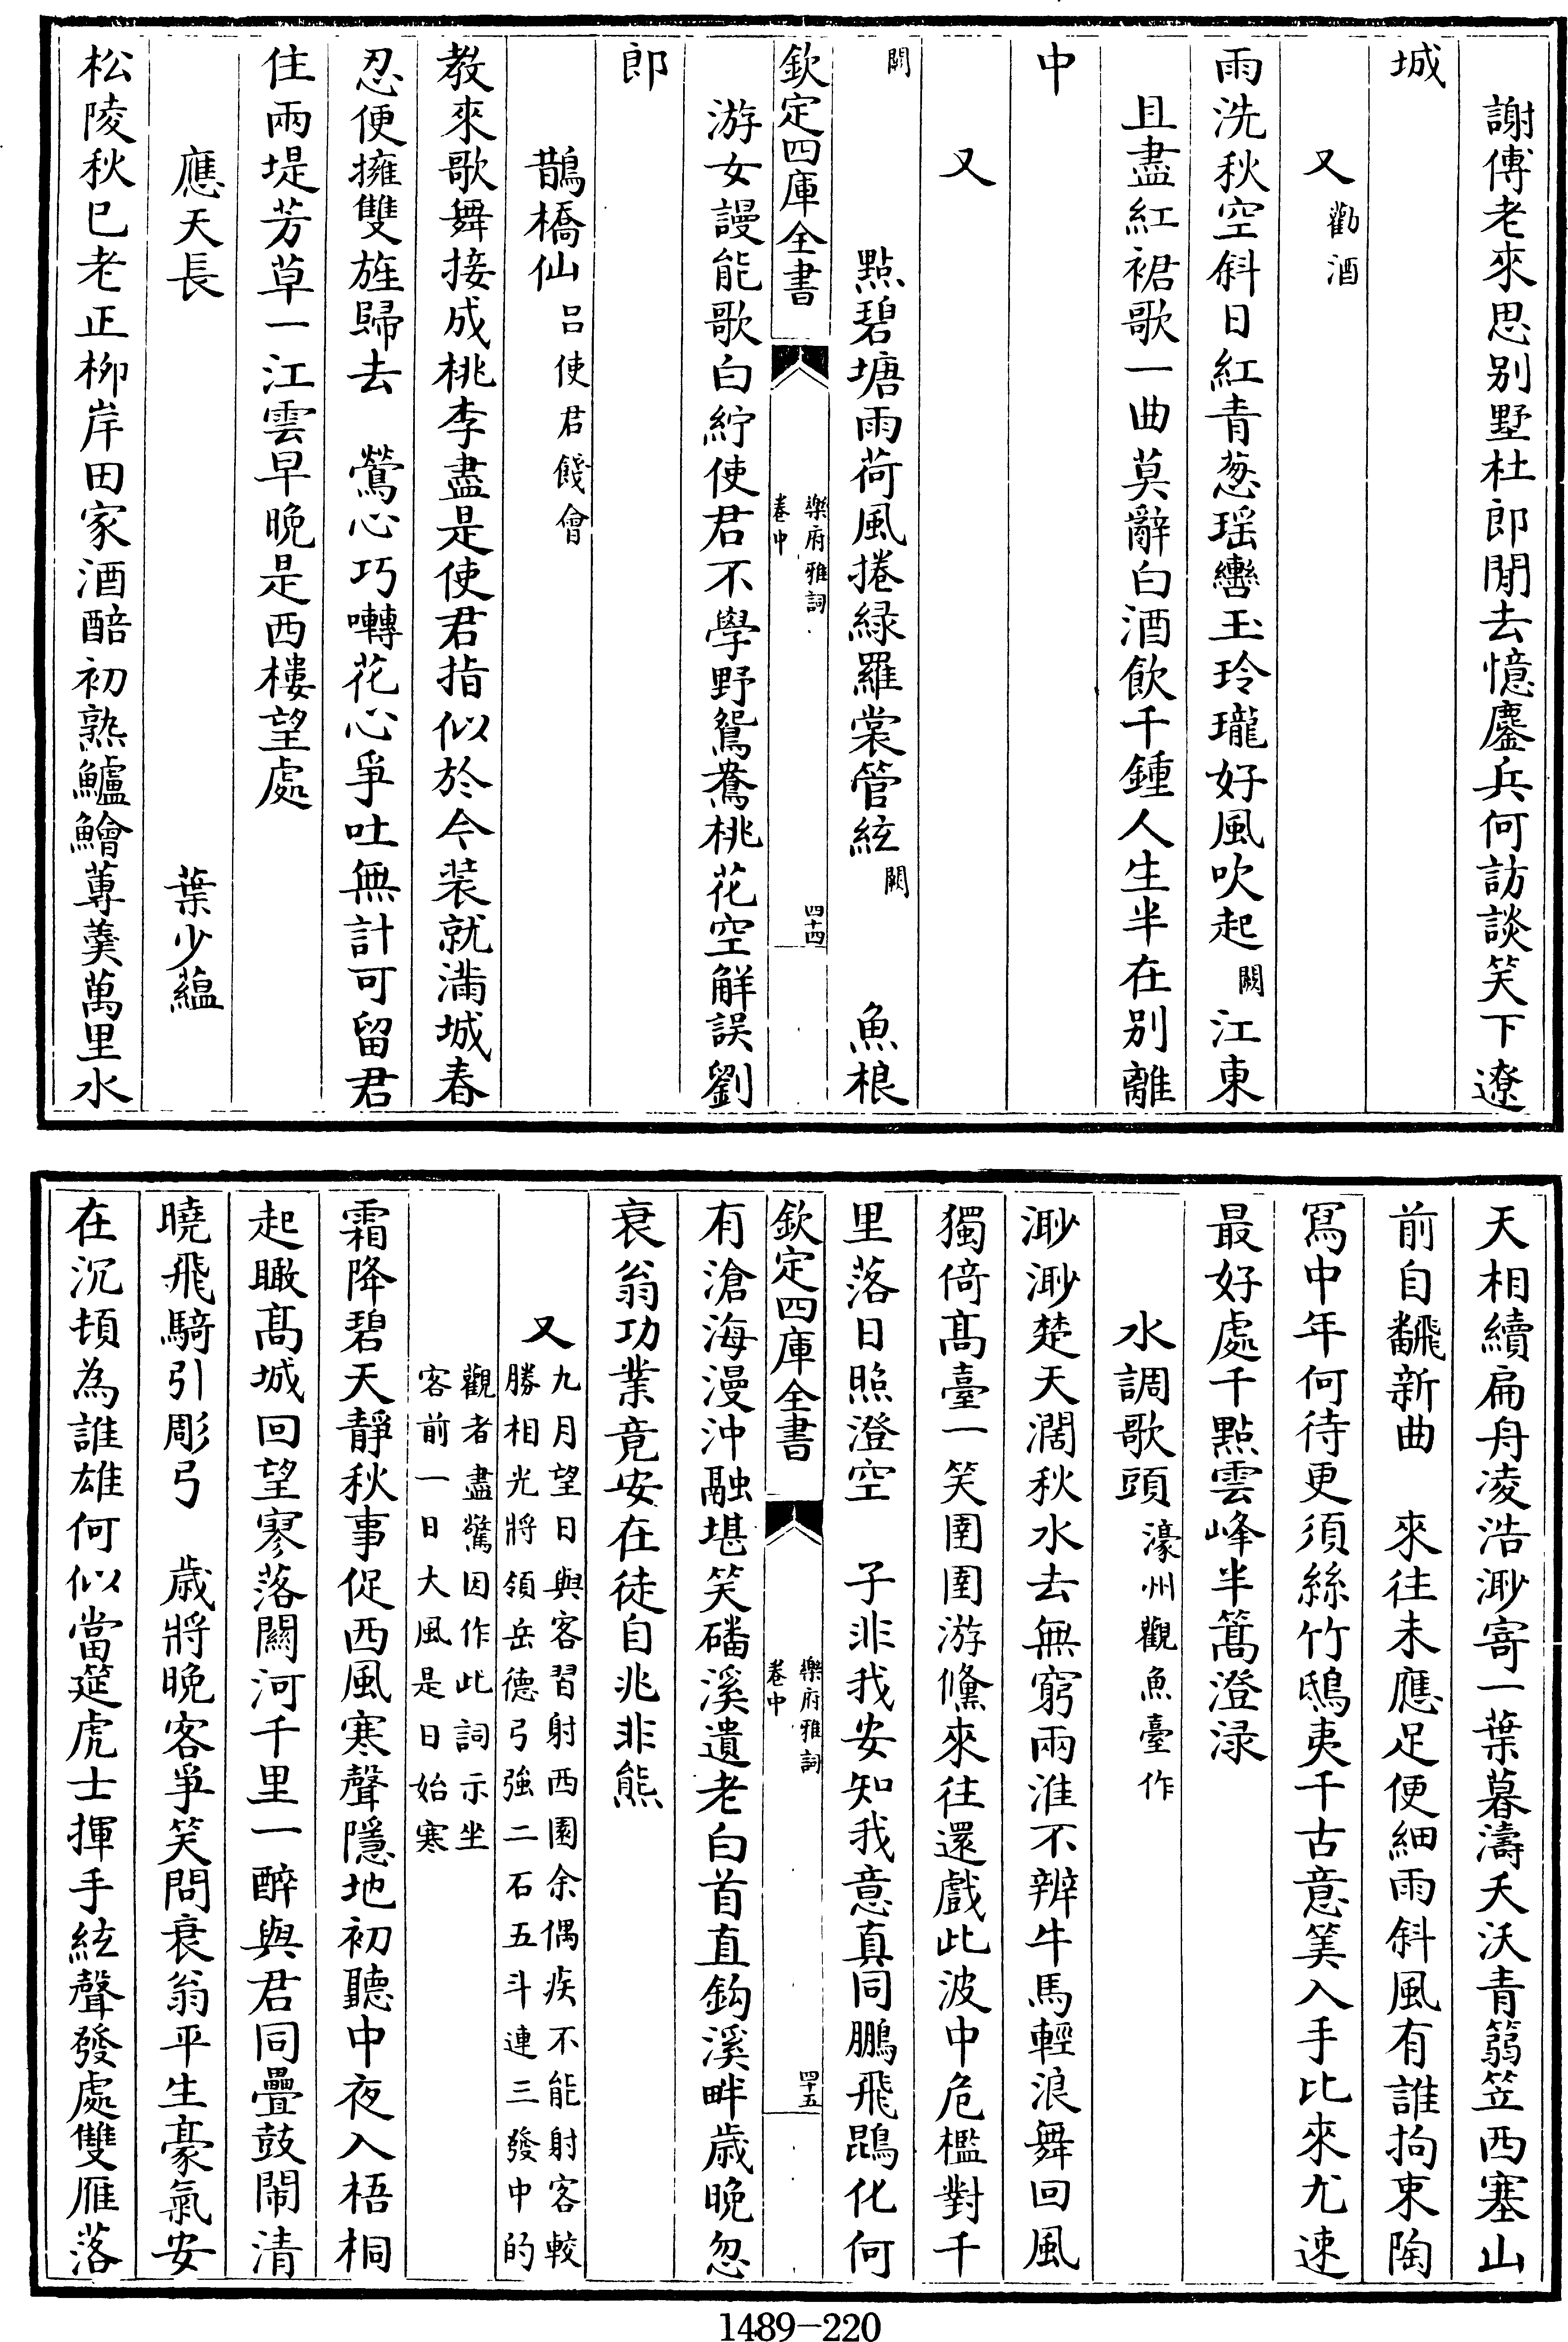 謝傅老來思别墅杜郎閒去憶鏖兵何訪談笑下遼
城
又勸酒
雨洗秋空斜日紅青葱瑶轡玉玲瓏好風吹起闕江東
且盡紅裙歌一曲莫辭白酒飲千鍾人生半在别離
中
又
闕 點碧塘雨荷風捲緑羅裳管絃闕 魚桹
欽定四庫全書
樂府雅詞
卷中
四十四
游女謾能歌白紵使君不學野鴛鴦桃花空解誤劉
郎
鵲橋仙吕使君餞會
教來歌舞接成桃李盡是使君指似於今装就滿城春
忍便擁雙旌歸去 鶯心巧囀花心爭吐無計可留君
住兩堤芳草一江雲早晚是西樓望處
應天長 葉少藴
松陵秋已老正栁岸田家酒醅初熟鱸鱠蓴羮萬里水
天相續扁舟凌浩渺寄一葉暮濤夭沃青篛笠西塞山
前自飜新曲 來往未應足便細雨斜風有誰拘束陶
冩中年何待更須絲竹鴟夷千古意筭入手比來尤速
最好處千點雲峰半篙澄渌
水調歌頭濠州觀魚臺作
渺渺楚天濶秋水去無窮兩淮不辨牛馬輕浪舞回風
獨倚髙臺一笑圉圉游儵來往還戲此波中危檻對千
里落日照澄空 子非我安知我意真同鵬飛鵾化何
欽定四庫全書
樂府雅詞
卷中
四十五
有滄海漫沖融堪笑磻溪遺老白首直鈎溪畔歳晚忽
衰翁功業竟安在徒自兆非熊
又九月望日與客習射西園余偶疾不能射客較
勝相光將領岳德弓強二石五斗連三發中的
觀者盡驚因作此詞示坐
客前一日大風是日始寒
霜降碧天靜秋事促西風寒聲隱地初聽中夜入梧桐
起瞰髙城回望寥落關河千里一醉與君同疊鼓閙清
曉飛騎引彫弓 歳將晚客爭笑問衰翁平生豪氣安
在沉頓為誰雄何似當筵虎士揮手絃聲發處雙雁落
1489-220